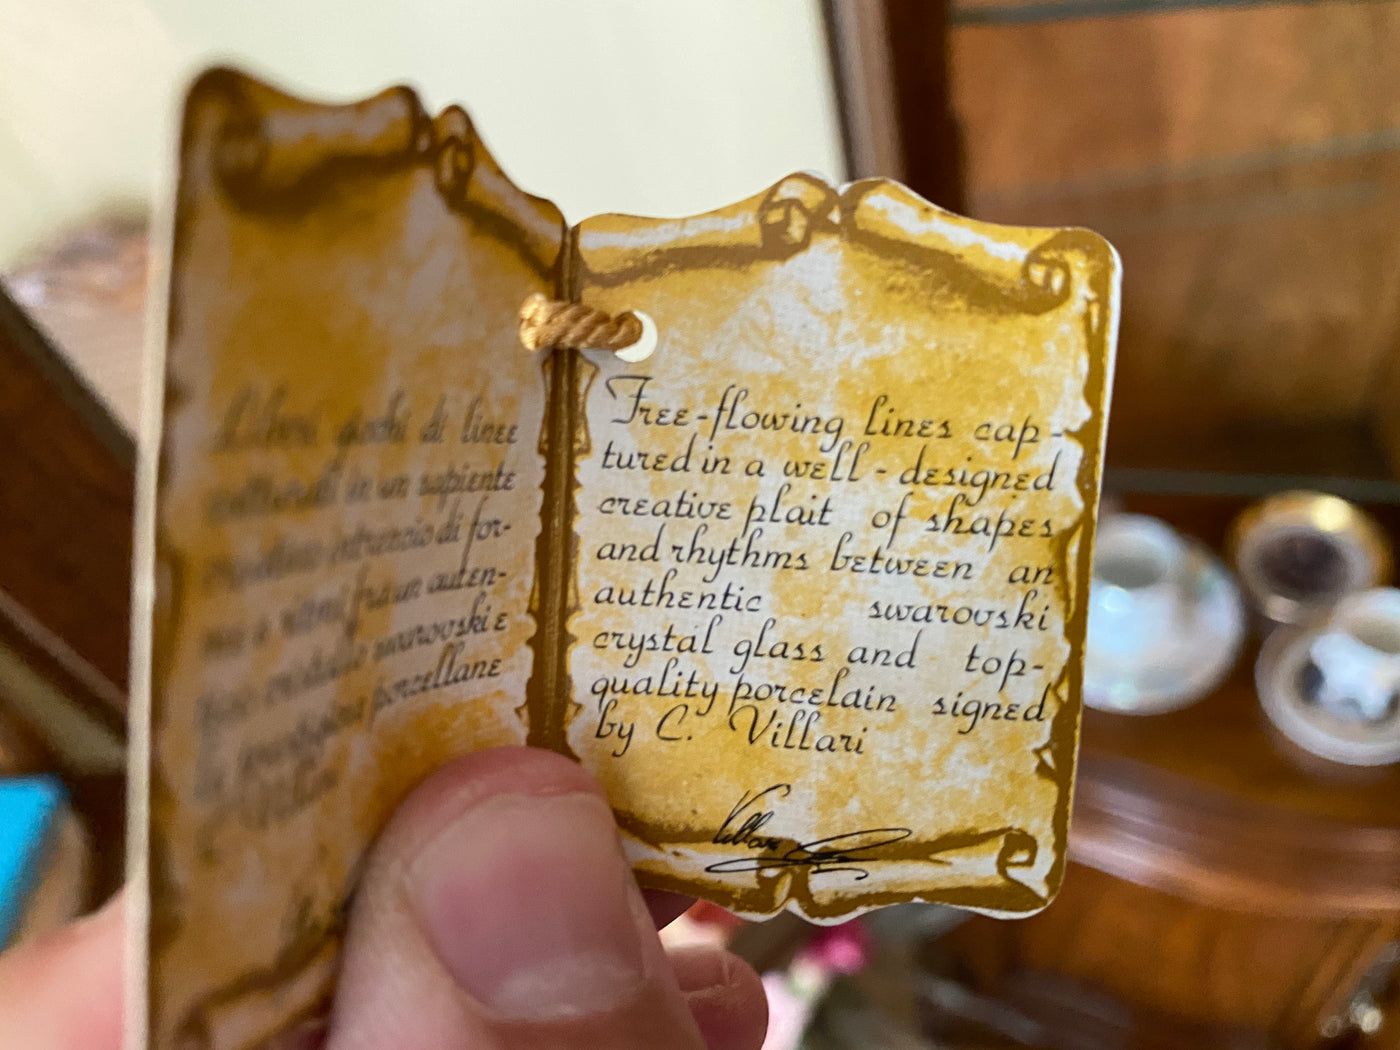 Liberi giochi di linee
in un sapiente
intreccio di for-
fra un auten-
swarovski e
porcellane
Free-flowing lines cap-
tured in a well - designed
creative plait of shapes
and rhythms between an
authentic swarovski
crystal glass and top-
quality porcelain signed
by C. Villari
Villari